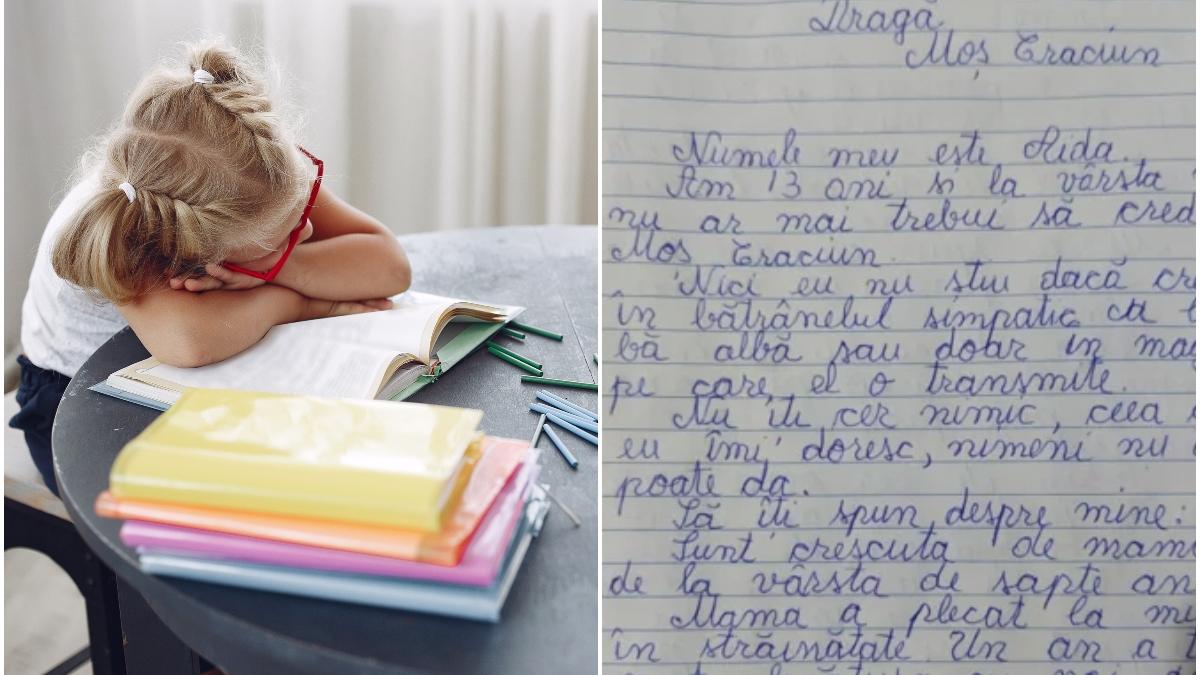 Dragă
Moș Crăciun
Numele meu este Aida.
Am 13 ani si la vârsta
nu ar mai trebui să cred
Moș Craciun.
Nici eu nu stiu dacă
în bătrânelul simpatic cu
bă albă sau doar in
pe care el o transmite.
Nu iti cer nimic, ceea
eu îmi doresc, nimeni nu
poate da.
Să îti spun despre mine:
Sunt crescuta de
de la vârsta de sapte
Mama a plecat la
în străinătate. Un an a